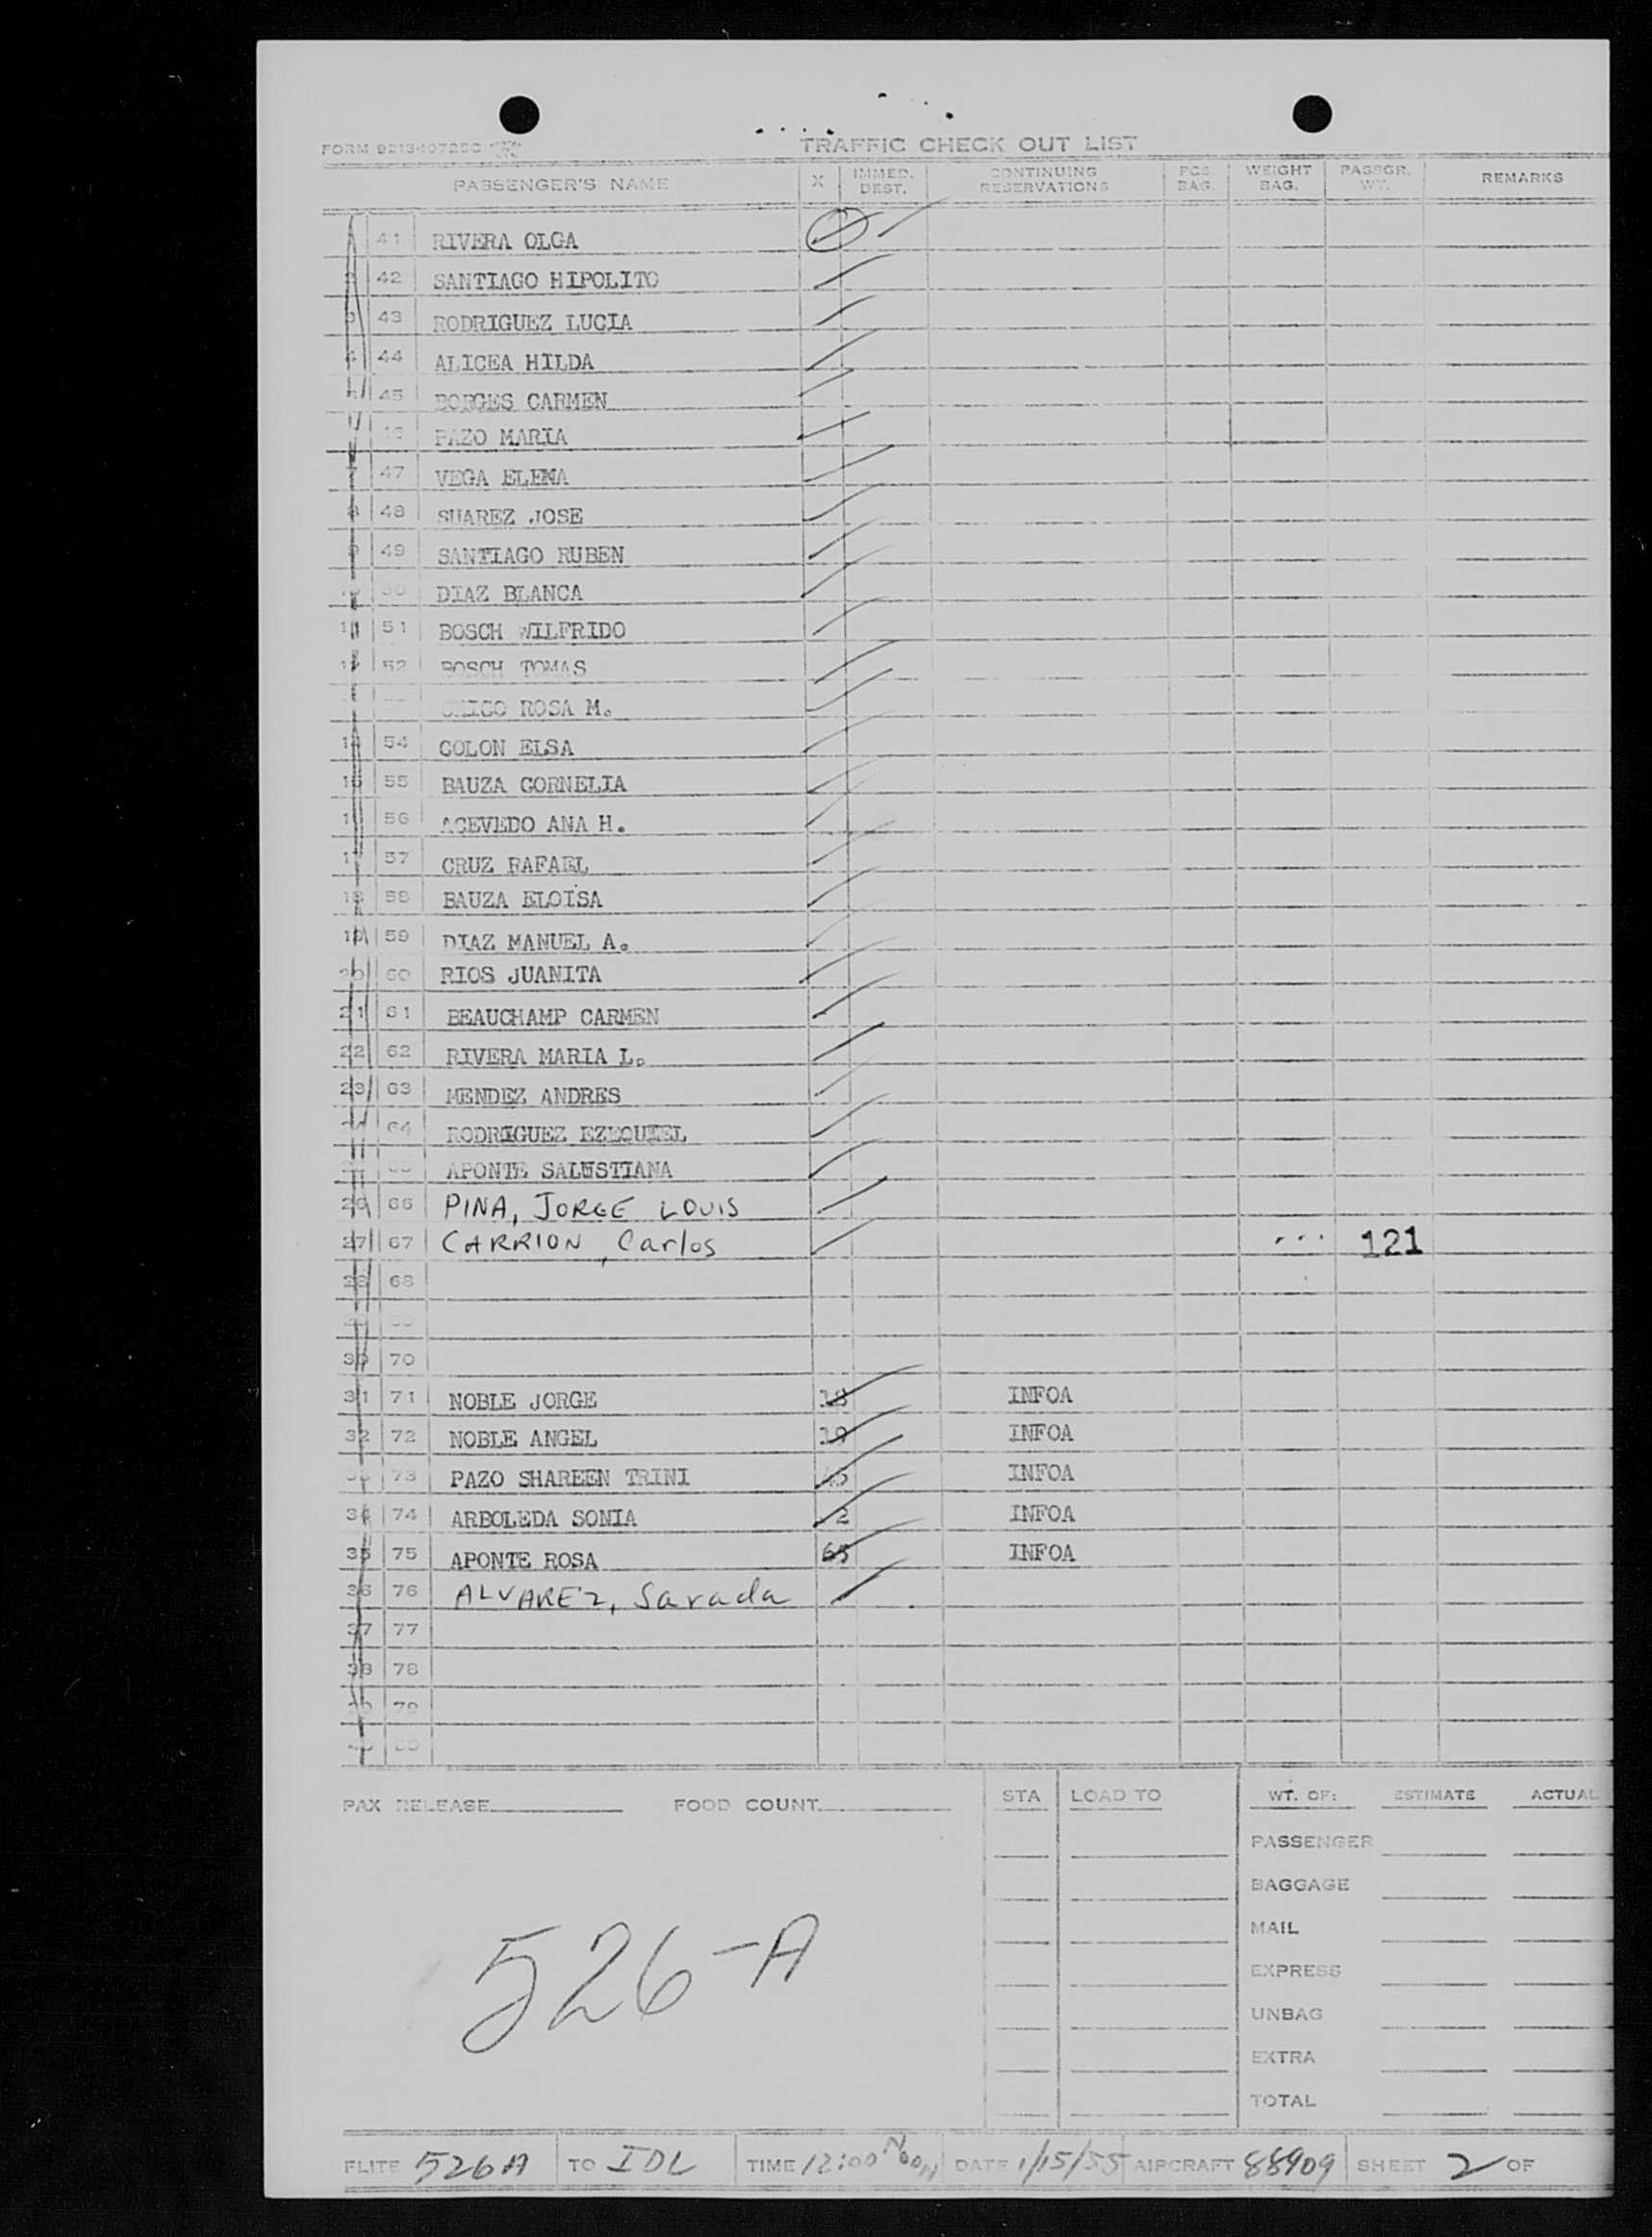 FORM 9213-10725C
TRAFFIC CHECK OUT LIST
PASSENGER'S NAME X IMMED. DEST. CONTINUING RESERVATIONS PCS. BAG. WEIGHT BAG. PASSGR. WT. REMARKS
41 RIVERA OLGA
42 SANTIAGO HIPOLITO
3 43 RODRIGUEZ LUCIA
4 44 ALICEA HILDA
5 45 BORGES CARMEN
46 PAZO MARIA
7 47 VEGA ELENA
8 48 SUAREZ JOSE
9 49 SANTIAGO RUBEN
50 DIAZ BLANCA
11 51 BOSCH WILFRIDO
12 52 BOSCH TOMAS
ROSA M.
14 54 COLON ELSA
15 55 BAUZA CORNELIA
16 56 ACEVEDO ANA H.
17 57 CRUZ RAFAEL
18 58 BAUZA ELOISA
19 59 DIAZ MANUEL A.
20 60 RIOS JUANITA
21 61 BEAUCHAMP CARMEN
22 62 RIVERA MARIA L.
23 63 MENDEZ ANDRES
24 64 RODRIGUEZ EZEQUIEL
65 APONTE SALUSTIANA
26 66 PINA, JORGE LOUIS
27 67 CARRION, Carlos 121
28 68
30 70
31 71 NOBLE JORGE 18 INFOA
32 72 NOBLE ANGEL 19 INFOA
73 PAZO SHAREEN TRINI INFOA
34 74 ARBOLEDA SONIA 2 INFOA
35 75 APONTE ROSA 65 INFOA
36 76 ALVAREZ, Sarada
37 77
38 78
79
40 80
PAX RELEASE FOOD COUNT STA LOAD TO WT. OF: ESTIMATE ACTUAL
PASSENGER
BAGGAGE
MAIL
EXPRESS
UNBAG
EXTRA
TOTAL
526-A
FLITE 526A TO IDL TIME 12:00 NOON DATE 1/15/55 AIRCRAFT 88909 SHEET 2 OF